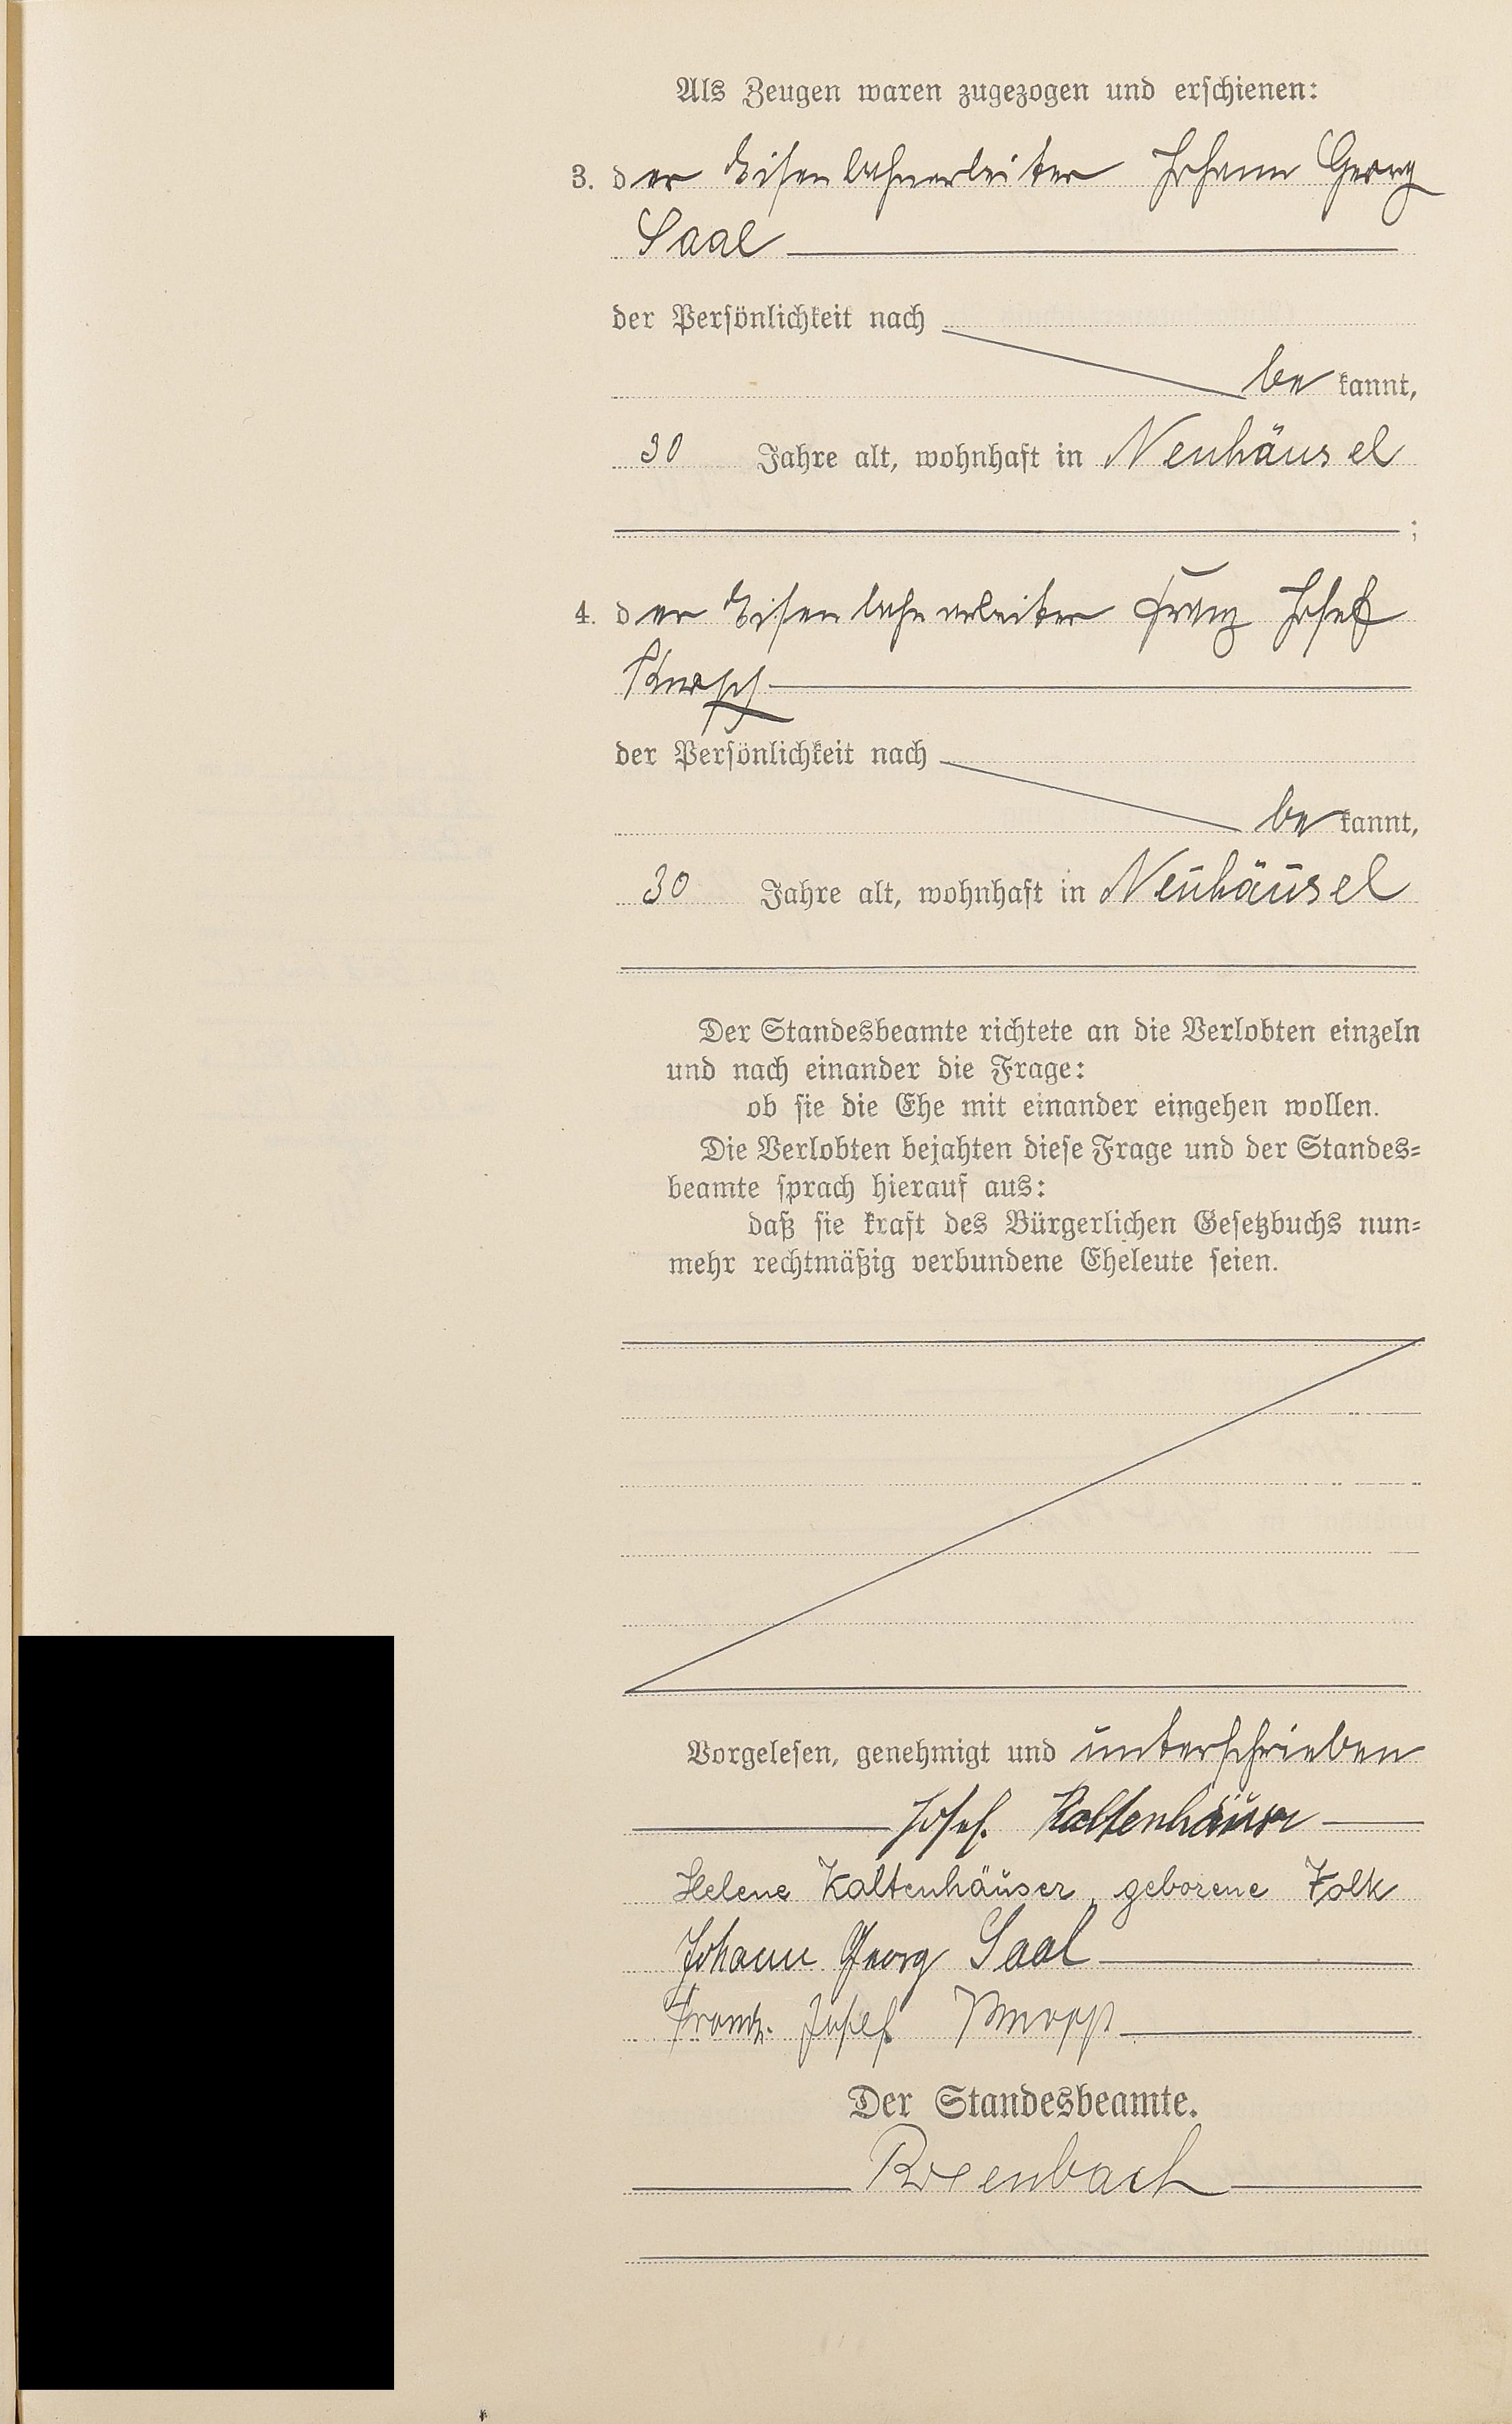 Als Zeugen waren zugezogen und erschienen:
3. der Eisenbahnarbeiter Johann Georg
Saal
der Persönlichkeit nach
be kannt,
30 Jahre alt, wohnhaft in Neuhäusel
;
4. der Eisenbahnarbeiter Franz Josef
Knopp
der Persönlichkeit nach
be kannt,
30 Jahre alt, wohnhaft in Neuhäusel
Der Standesbeamte richtete an die Verlobten einzeln
und nach einander die Frage:
ob sie die Ehe mit einander eingehen wollen.
Die Verlobten bejahten diese Frage und der Standes-
beamte sprach hierauf aus:
daß sie kraft des Bürgerlichen Gesetzbuchs nun-
mehr rechtmäßig verbundene Eheleute seien.
Vorgelesen, genehmigt und unterschrieben
Josef Kaltenhäuser
Helene Kaltenhäuser, geborene Volk
Johann Georg Saal
Franz Josef Knopp
Der Standesbeamte.